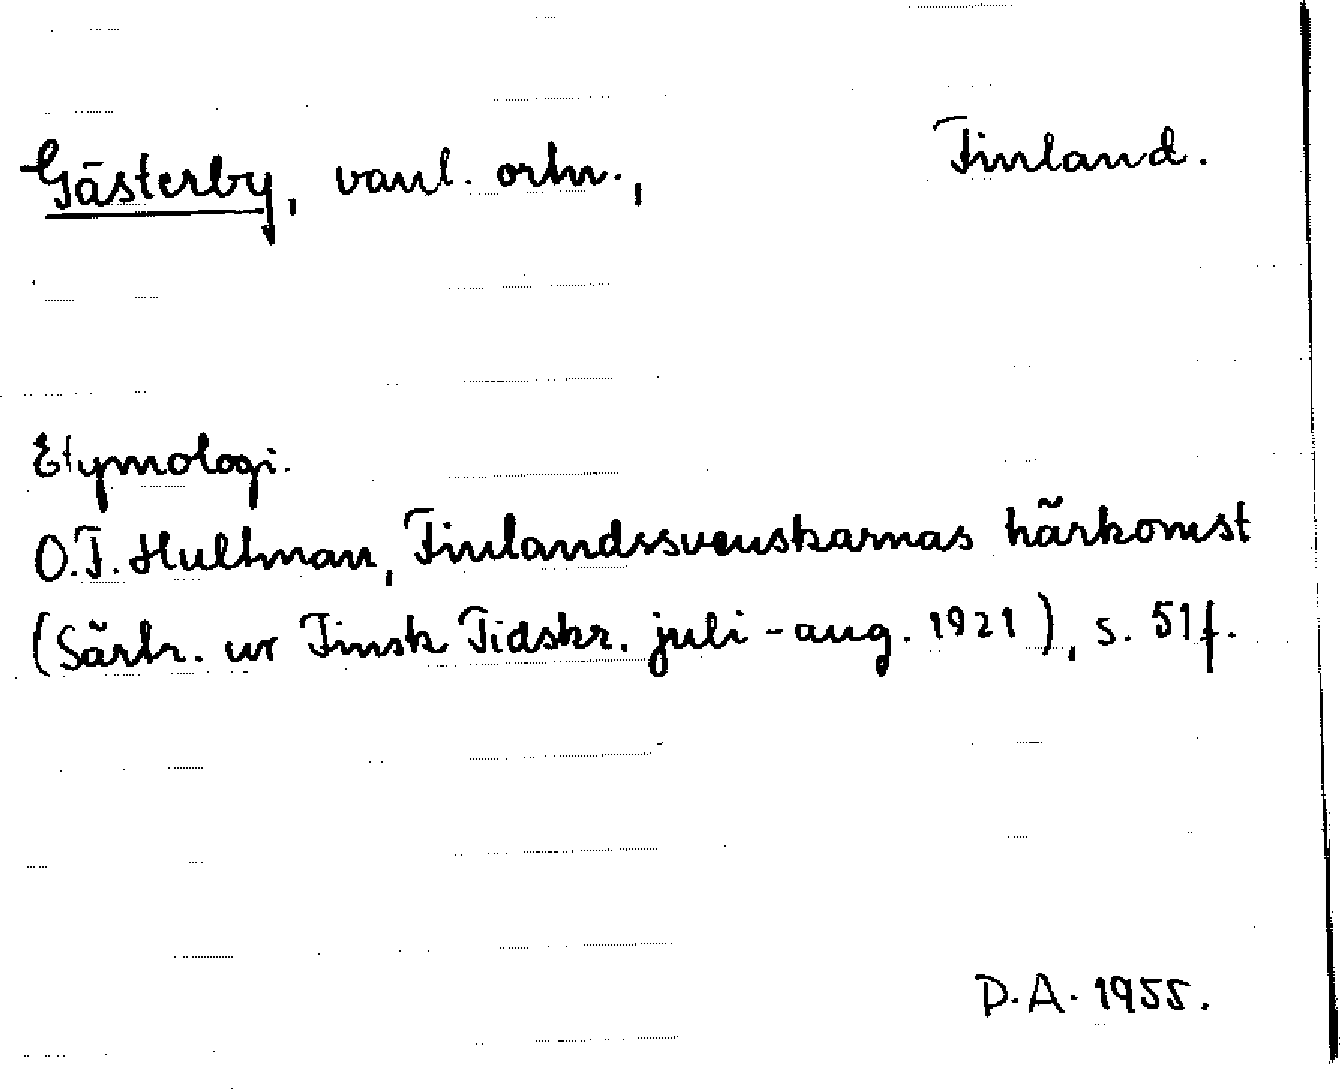 Gästerby, vanl. ortn., Finland.
Etymologi.
O.F. Hultman, Finlandssvenskarnas härkomst
(Särtr. ur Finsk Tidskr. juli-aug. 1921), s. 51f.
D.A. 1955.